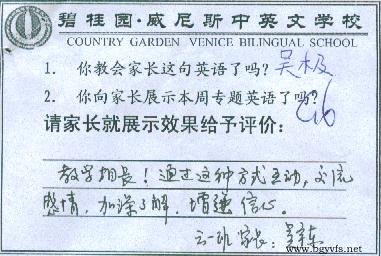 碧桂园·威尼斯中英文学校
COUNTRY GARDEN VENICE BILINGUAL SCHOOL
1. 你教会家长这句英语了吗? 吴极
2. 你向家长展示本周专题英语了吗?
请家长就展示效果给予评价:
教学相長！通过这种方式互动，交流
感情，加深了解，增强信心。
班 家长:
www.bgyvfs.net